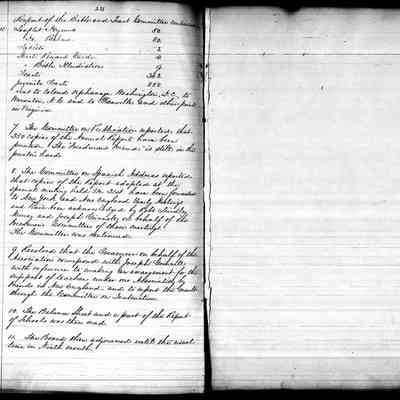 Report of the Bible and Tract Committee continued
Leaflet Hymns 50.
Do. Psalms 50.
Tracts 362
Juvenile Tracts
sent to Colored Orphanage Washington, D.C., to
and to Danville and other parts
in Virginia.
7. The Committee on Publication reported that
350 copies of the Annual Report have been
printed. "The Freedmen's Friend" is still in the
printer's hands
8. The Committee on Address reported
that copies of the Report adopted at the
special meeting held have been forwarded
to New York and New England Yearly Meetings
and have been acknowledged by
Murray and Joseph on behalf of the
Freedmen's Committees of those meetings.
The Committee was continued.
9. Resolved that the Treasurer on behalf of the
Association correspond with Joseph
with reference to making an arrangement for the
support of teachers under our Association by
Friends in New England - and to report the result
through the Committee on Instruction
10. The Balance Sheet and a part of the Report
of Schools was then read.
11. The Board then adjourned until the usual
time in Ninth month.